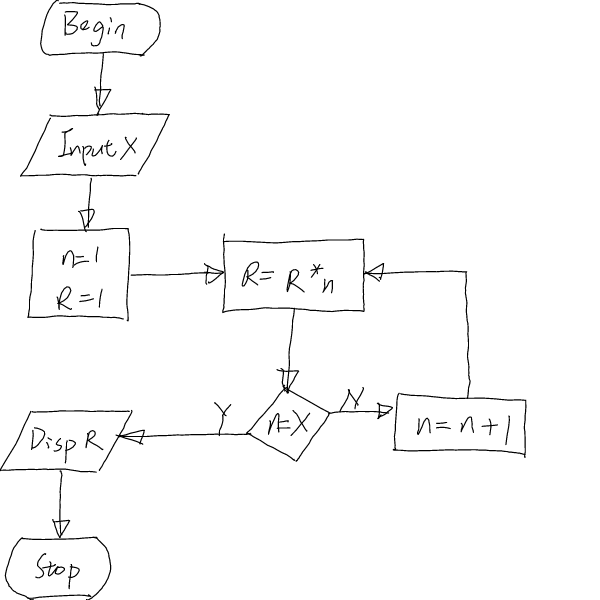 Begin
Input X
n=1
R=1
R= R*n
n=X
N
n=n+1
Y
Disp R
Stop